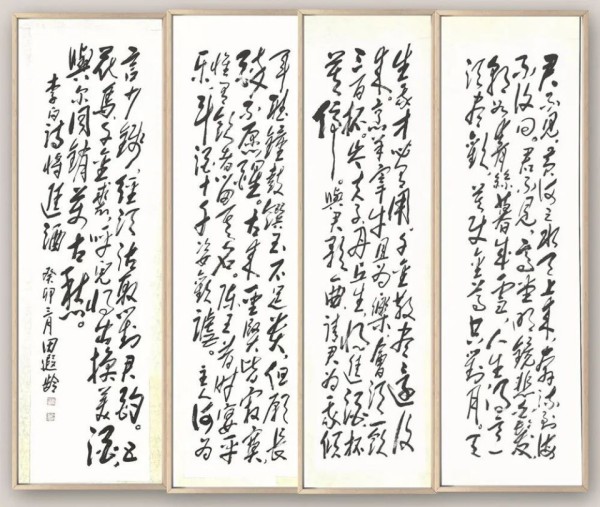 君不見黄河之水天上来奔流到海
不復回。君不見高堂明鏡悲白髮
朝如青絲暮成雪,人生得意
須盡歡,莫使金尊空對月。天
生我才必有用,千金散盡還復
来,烹羊宰牛且為樂,會須一飲
三百杯,岑夫子丹丘生,將進酒杯
莫停。與君歌一曲,請君為我傾
耳聽,鐘鼓饌玉不足貴,但願長
醉不願醒。古来聖賢皆寂寞,
惟有飲者留其名。陳王昔時宴平
乐,斗酒十千恣歡謔。主人何為
言少錢,徑須沽取對君酌。五
花馬千金裘,呼兒將出換美酒,
與尔同銷萬古愁。
李白詩將進酒 癸卯三月田遐齡